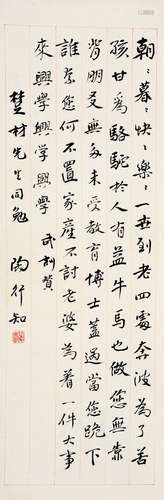 朝〻暮〻快〻樂〻一世到老四處奔波為了苦
孩甘為駱駝於人有益牛馬也做您無靠
背朋友無多未受教育博士蓋過當您跪下
誰奈您何不置家產不討老婆為着一件大事
來興學興學興學 武訓贊
楚材先生同勉
陶行知